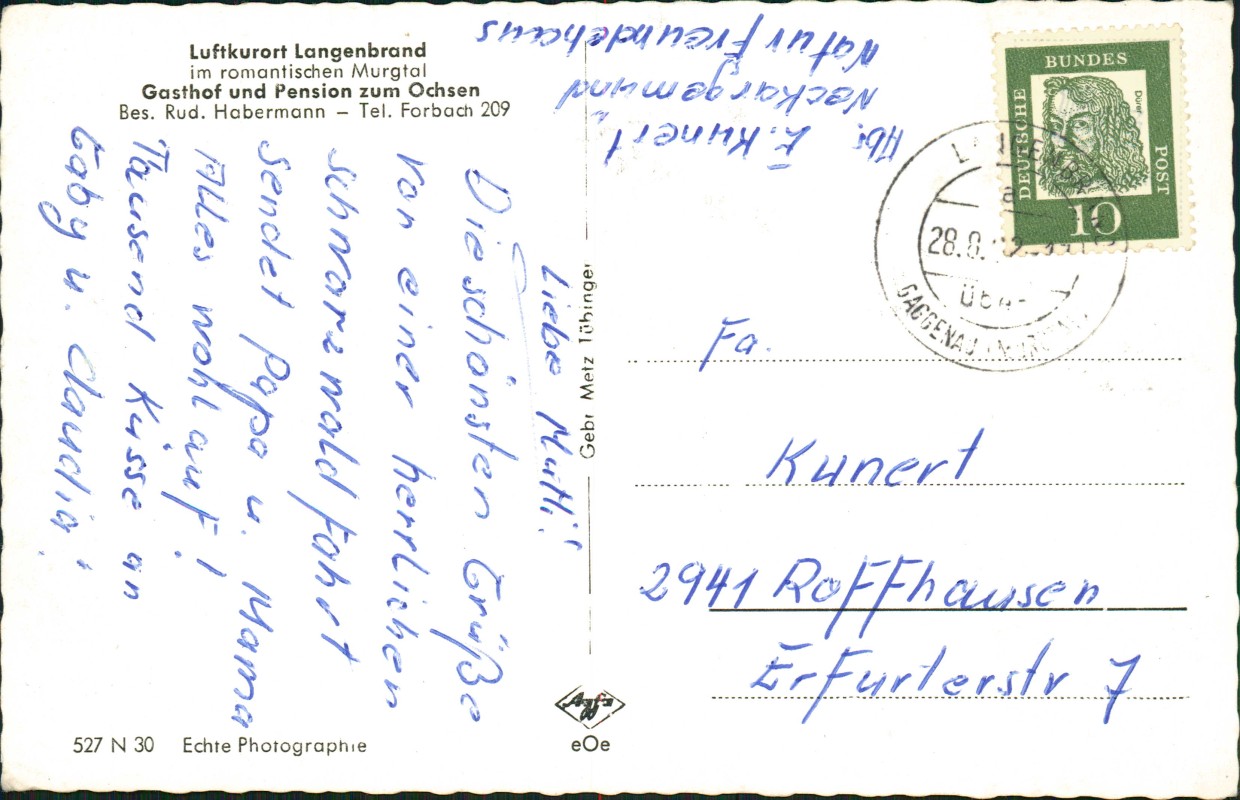 Luftkurort Langenbrand
im romantischen Murgtal
Gasthof und Pension zum Ochsen
Bes. Rud. Habermann – Tel. Forbach 209
Liebe Mutti!
Die schönsten Grüße
von einer herrlichen
Schwarzwaldfahrt
sendet Papa u. Mama
Alles wohlauf!
Tausend Küsse an
Gaby u. Claudia!
527 N 30 Echte Photographie
Gebr Metz Tübingen
eOe
Abs. E. Kunert
Neckargemünd
Naturfreundehaus
DEUTSCHE
BUNDES
POST
Dürer
10
28.8.
GAGGENAU
Fa.
Kunert
2941 Roffhausen
Erfurterstr 7